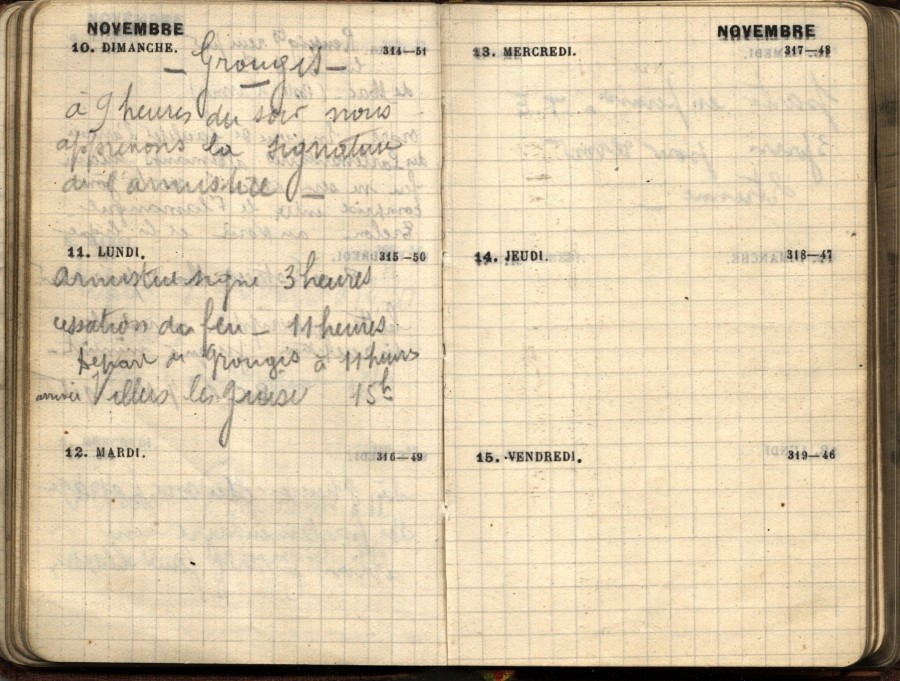 NOVEMBRE
10. DIMANCHE. 314—51
— Grougis —
à 9 heures du soir nous
apprenons la signature
de l'armistice —
11. LUNDI. 315-50
armistice signé 3 heures
cessation du feu — 11 heures
Départ de Grougis à 11 heures
arrivée Villers les guise 15h
12. MARDI. 316—49
NOVEMBRE
13. MERCREDI. 317—48
14. JEUDI. 318—47
15. VENDREDI. 319—46